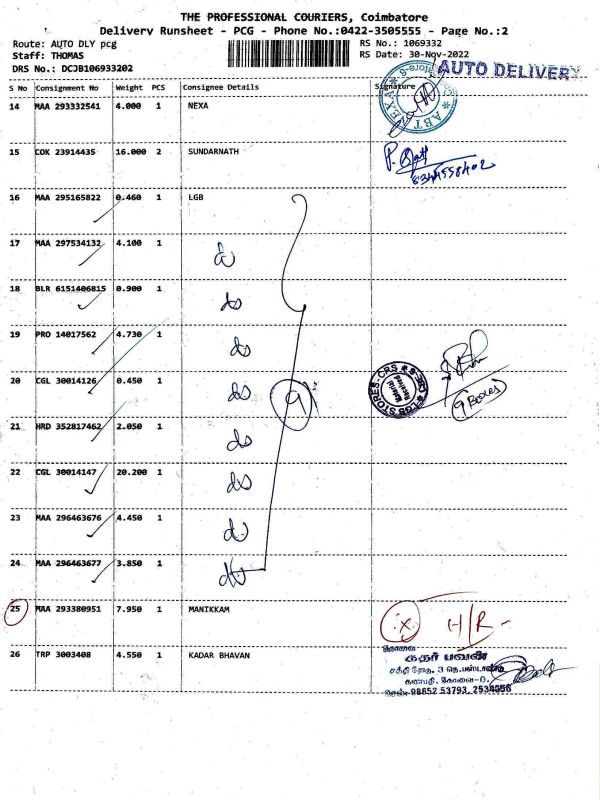 THE PROFESSIONAL COURIERS, Coimbatore
Delivery Runsheet - PCG - Phone No.:0422-3505555 - Page No.:2
Route: AUTO DLY pcg
RS No.: 1069332
Staff: THOMAS
RS Date: 30-Nov-2022
DRS No.: DCJB106933202
AUTO DELIVERY
S No Consignment No Weight PCS Consignee Details Signature
14 MAA 293332541 4.000 1 NEXA
ABT NEXA
15 COK 23914435 16.000 2 SUNDARNATH
16 MAA 295165822 0.460 1 LGB
17 MAA 297534132 4.100 1 do
18 BLR 6151406815 0.900 1 do
19 PRO 14017562 4.730 1 do
20 CGL 30014126 0.450 1 do
9
LGB STORES-CRS
9 Boxes
21 HRD 352817462 2.050 1 do
22 CGL 30014147 20.200 1 do
23 MAA 296463676 4.450 1 do
24 MAA 296463677 3.850 1 do
25 MAA 293380951 7.950 1 MANIKKAM
x H/R-
26 TRP 3003408 4.550 1 KADAR BHAVAN
கோவை
கதர் பவன்
சக்தி ரோடு, 3
கணபதி, கோவை-6.
செல்: 98652 53793, 2534056